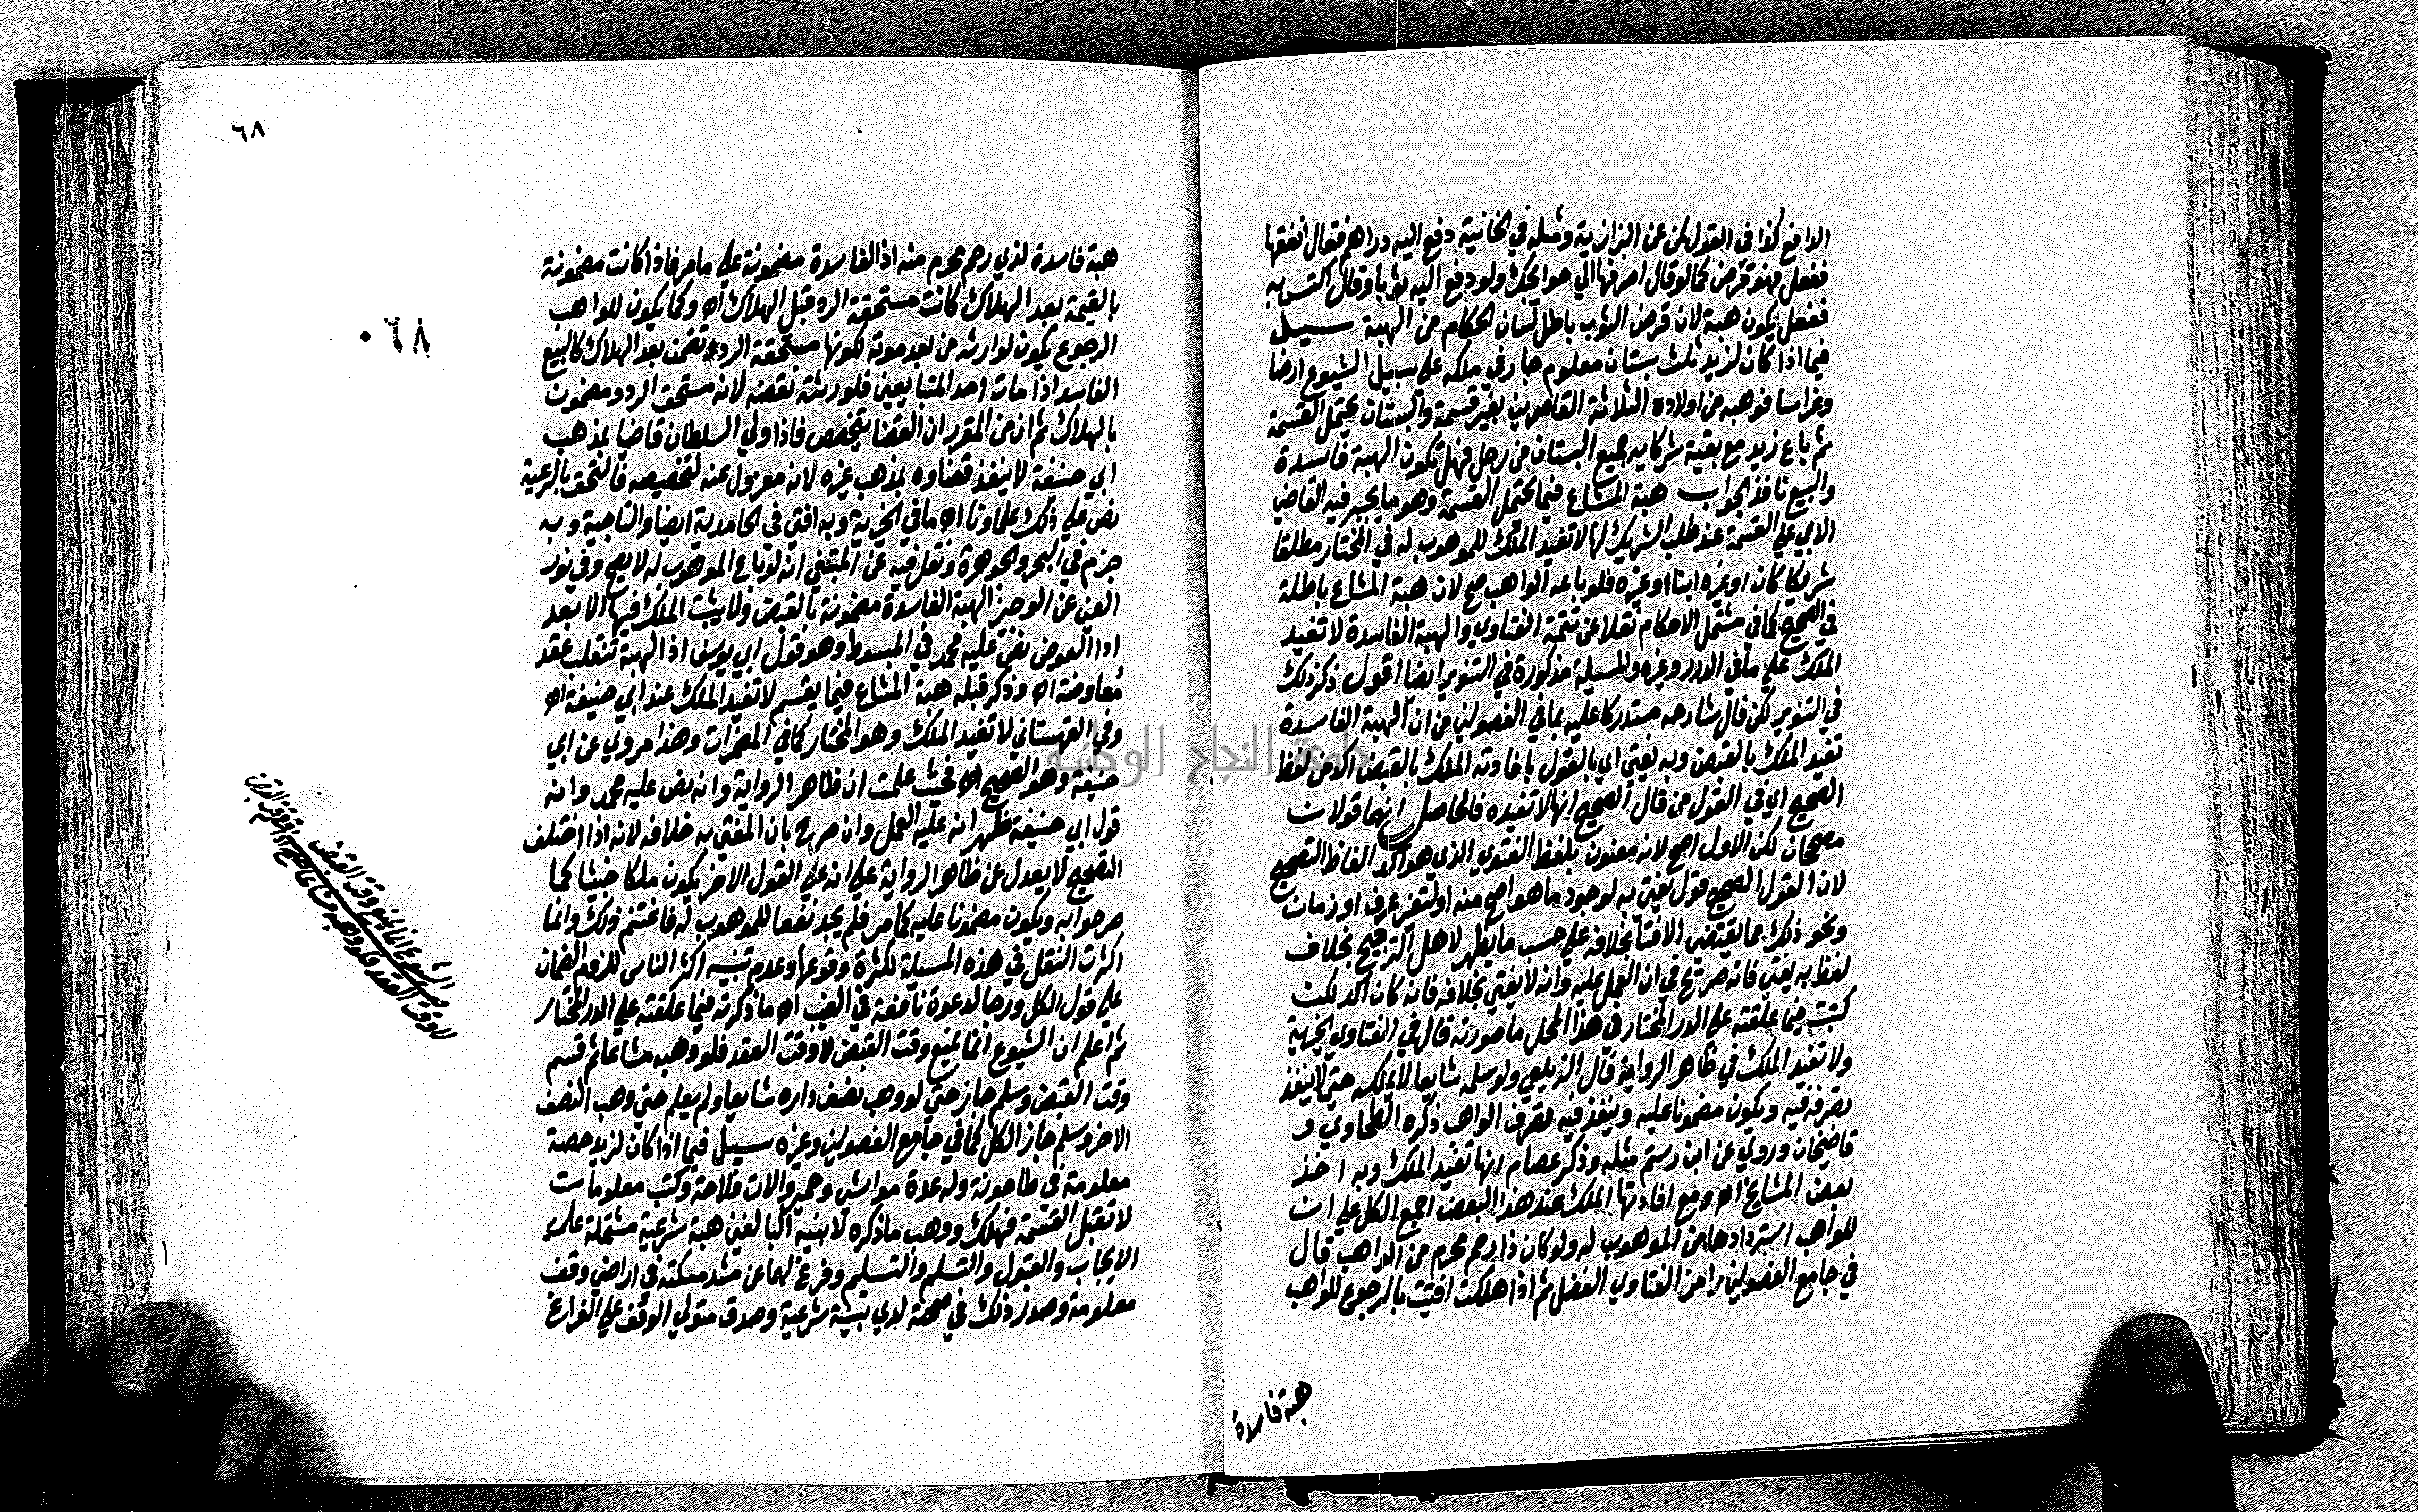 الدافع كذا في القول لمن عن البزازية ومثله في الخانية دفع اليه دراهم فقال انفقها
ففعل فهو قرض كما لو قال اصرفها الي حوائجك ولو دفع اليه ثوبا وقال اكتس به
ففعل يكون هبة لان قرض الثوب باطل لسان الحكام من الهبة سيل
فيما اذا كان لزيد ثلث بستان معلوم جار في ملكه علي سبيل الشيوع ارضا
وغراسا فوهبه من اولاده الثلاثة القاصرين بغير قسمة والبستان يحتمل القسمة
ثم باع زيد مع بقية شركايه جميع البستان من رجل فهل تكون الهبة فاسدة
والبيع نافذ الجواب هبة المشاع فيما يحتمل القسمة وهو ما يجبر فيه القاضي
الابي علي القسمة عند طلب الشريك لها لا تفيد الملك للموهوب له في المختار مطلقا
شريكا كان او غيره ابنا او غيره فلو باعه الواهب صح لان هبة المشاع باطلة
في الصحيح كما في مشتمل الاحكام نقلا عن تتمة الفتاوي والهبة الفاسدة لا تفيد
الملك علي ما في الدرر وغيره والمسيلة مذكورة في التنوير ايضا اقول ذكر ذلك
في التنوير لكن قال شارحه مستدركا عليه بما في الفصولين من ان الهبة الفاسدة
تفيد الملك بالقبض وبه يفتي اي بالقول بافادته الملك بالقبض اكد من لفظ
الصحيح اي في القول من قال الصحيح انها لا تفيده فالحاصل انهما قولان
مصححان لكن الاول اصح لانه معنون بلفظ الفتوي الذي هو اكد الفاظ التصحيح
لان القول الصحيح قول يفتي به لوجود ما هو اصح منه او لتغير عرف او زمان
ونحو ذلك مما يقتضي الافتا بخلافه علي حسب ما يظهر لاهل الترجيح بخلاف
لفظ به يفتي فانه صريح في ان العمل عليه وانه لا يفتي بخلافه فانه كان اكد لكن
كتبت فيما علقته علي الدر المختار في هذا المحل ما صورته قال في الفتاوي الخيرية
ولا تفيد الملك في ظاهر الرواية قال الزيلعي ولو سلمه شايعا لا يملكه حتي لا ينفذ
تصرفه فيه ويكون مضمونا عليه وينفذ فيه تصرف الواهب ذكره الطحاوي و
قاضيخان وروي عن ابن رستم مثله وذكر عصام انها تفيد الملك وبه اخذ
بعض المشايخ اه ومع افادتها الملك عند هذا البعض اجمع الكل علي ان
للواهب استردادها من الموهوب له ولو كان ذا رحم محرم من الواهب قال
في جامع الفصولين رامزا لفتاوي الفضل ثم اذا هلكت افتيت بالرجوع للواهب
هبة فاسدة
٦٨
٠٦٨
هبة فاسدة لذي رحم محرم منه اذ الفاسدة مضمونة علي ما مر فاذا كانت مضمونة
بالقيمة بعد الهلاك كانت مستحقة الرد قبل الهلاك اه وكما يكون للواهب
الرجوع يكون لوارثه من بعد موته لكونها مستحقة الرد تضمن بعد الهلاك كالبيع
الفاسد اذا مات احد المتبايعين فلورثته نقضه لانه مستحق الرد ومضمون
بالهلاك ثم ان من المقرر ان القضا يتخصص فاذا ولي السلطان قاضيا بمذهب
ابي حنيفة لا ينفذ قضاوه بمذهب غيره لانه معزول عنه لتخصيصه فالتحق بالرعية
نص علي ذلك علماونا اه ما في الخيرية وبه افتي في الحامدية ايضا والتاجية وبه
جزم في البحر والجوهرة ونقل فيه عن المبتغي انه لو باع الموهوب له لا يصح وفي نور
العين عن الوجيز الهبة الفاسدة مضمونة بالقبض ولا يثبت الملك فيها الا بعد
ادا العوض نص عليه محمد في المبسوط وهو قول ابي يوسف اذ الهبة تنقلب عقد
معاوضة اه وذكر قبله هبة المشاع فيما يقسم لا تفيد الملك عند ابي حنيفة اه
وفي القهستاني لا تفيد الملك وهو المختار كما في المضمرات وهذا مروي عن ابي
حنيفة وهو الصحيح اه فحيث علمت ان ظاهر الرواية وانه نص عليه محمد وانه
قول ابي حنيفة ظهر انه عليه العمل وان صرح بان المفتي به خلافه لانه اذا اختلف
التصحيح لا يعدل عن ظاهر الرواية علي انه علي القول الاخر يكون ملكا خبيثا كما
صرحوا به ويكون مضمونا عليه كما مر فلم يجد نفعا للموهوب له فاغتنم ذلك وانما
اكثرت النقل في هذه المسيلة لكثرة وقوعها وعدم تنبيه اكثر الناس للزوم الضمان
علي قول الكل ورجا لدعوة نافعة في الغيب اه ما ذكرته فيما علقته علي الدر المختار
ثم اعلم ان الشيوع انما يمنع وقت القبض لا وقت العقد فلو وهب مشاعا ثم قسم
وقت القبض وسلم جاز حتي لو وهب نصف داره شايعا ولم يسلم حتي وهب النصف
الاخر وسلم جاز الكل كما في جامع الفصولين وغيره سيل فيما اذا كان لزيد حصة
معلومة في طاحونة وله عدة مواش وحمير والات فلاحة وكتب معلومات
لا تقبل القسمة فهلك ووهب ما ذكره لابنيه البالغين هبة شرعية مشتملة علي
الايجاب والقبول والتسلم والتسليم وفرغ لهما عن مشد مسكته في اراضي وقف
معلومة وصدر ذلك في صحته لدي بينة شرعية وصدق متولي الوقف علي الفراغ
الشيوع انما يمنع وقت القبض
لا وقت العقد فلو وهبه مشاعا